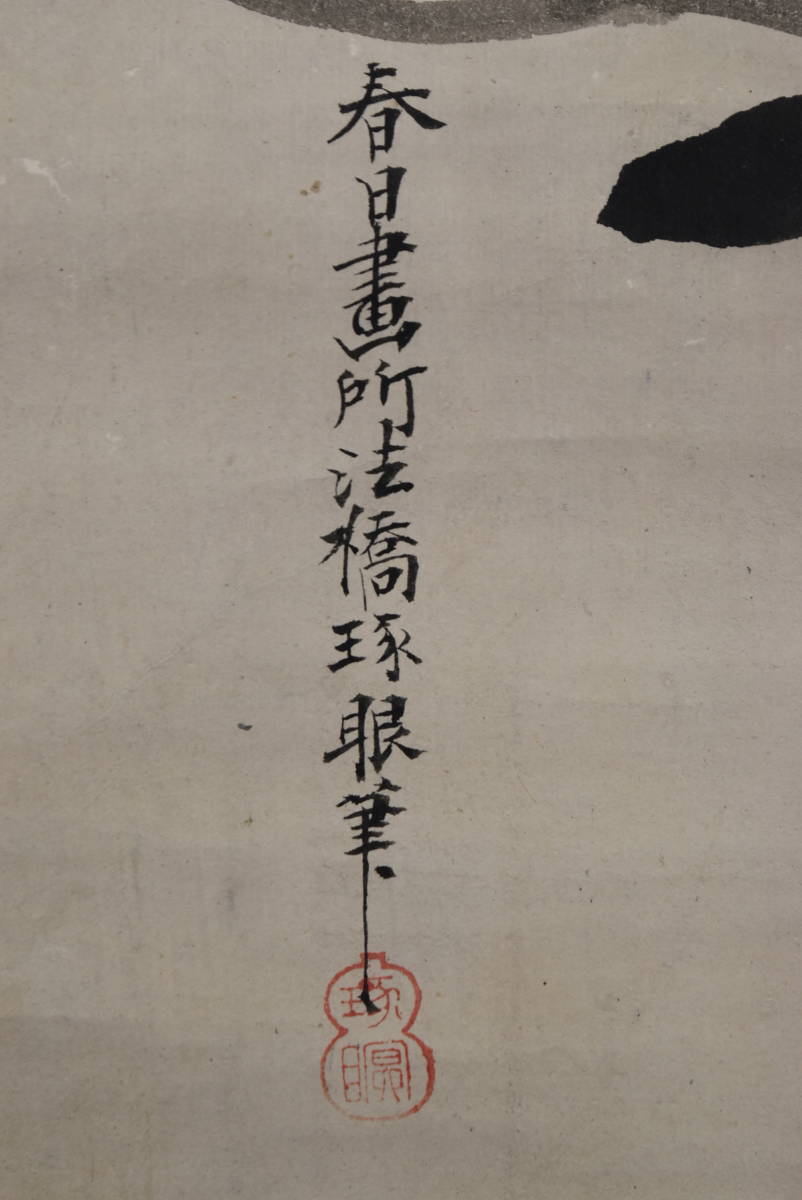 春日畫所法橋琢眼筆
琢眼